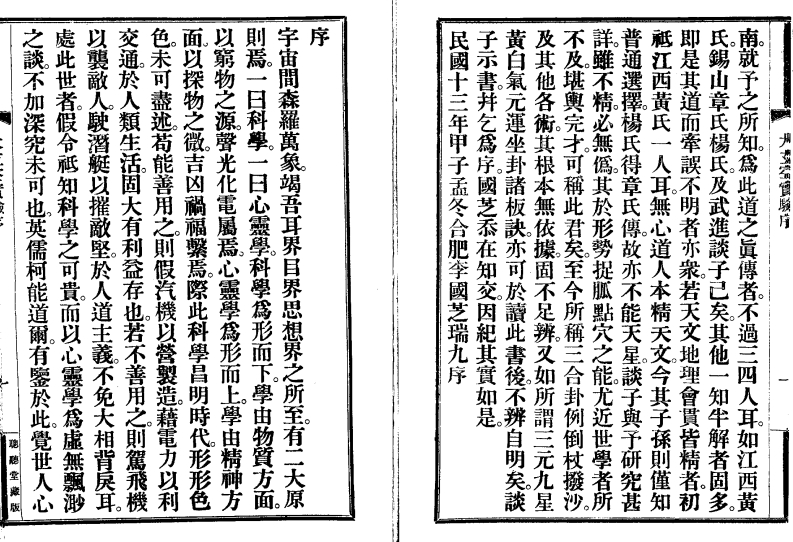 南。就予之所知。爲此道之眞傳者。不過三四人耳。如江西黃
氏。錫山章氏。楊氏。及武進談子已矣。其他一知半解者固多。
即是其道而牽誤不明者亦衆。若天文地理會貫皆精者。初
祗江西黃氏一人耳。無心道人本精天文。今其子孫則僅知
普通選擇。楊氏得章氏傳。故亦不能天星。談子與予研究甚
詳。雖不精必無僞。其於形勢捉脈點穴之能。尤近世學者所
不及。堪輿完才。可稱此君矣。至今所稱三合卦例倒杖撥沙。
及其他各術。其根本無依據。固不足辨。又如所謂三元九星
黃白氣元運坐卦諸板訣。亦可於讀此書後。不辨自明矣。談
子示書。幷乞爲序。國芝忝在知交。因紀其實如是。
民國十三年甲子孟冬合肥李國芝瑞九序
大玄空實驗序
一
序
宇宙間森羅萬象。竭吾耳界目界思想界之所至。有二大原
則焉。一曰科學。一曰心靈學。科學爲形而下。學由物質方面。
以窮物之源。聲光化電屬焉。心靈學爲形而上。學由精神方
面。以探物之微。吉凶禍福繫焉。際此科學昌明時代。形形色
色。未可盡述。苟能善用之。則假汽機以營製造。藉電力以利
交通。於人類生活。固大有利益存也。若不善用之。則駕飛機
以襲敵人。駛潛艇以摧敵堅。於人道主義。不免大相背戾耳。
處此世者。假令祗知科學之可貴。而以心靈學爲虛無飄渺
之談。不加深究。未可也。英儒柯能道爾。有鑒於此。覺世人心
一
聽聽堂藏版